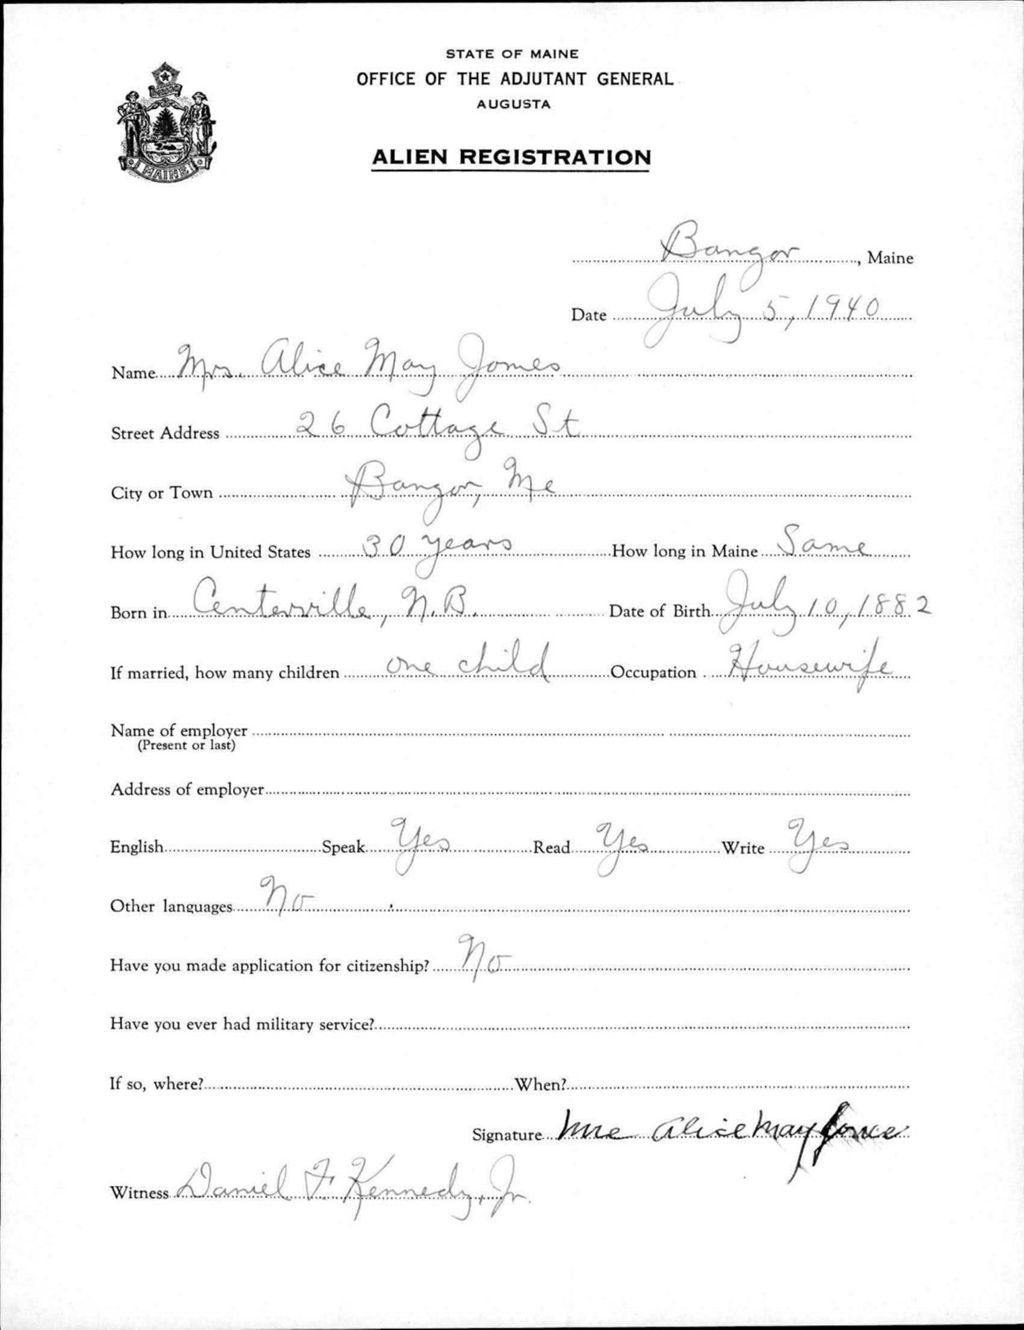 STATE OF MAINE
OFFICE OF THE ADJUTANT GENERAL
AUGUSTA
MAINE
ALIEN REGISTRATION
Bangor, Maine
Date July 5, 1940
Name Mrs. Alice May Jones
Street Address 26 Cottage St
City or Town Bangor, Me
How long in United States 30 years How long in Maine Same
Born in Centerville, N.B. Date of Birth July 10, 1882
If married, how many children one child Occupation Housewife
Name of employer
(Present or last)
Address of employer
English Speak Yes Read Yes Write Yes
Other languages No
Have you made application for citizenship? No
Have you ever had military service?
If so, where? When?
Signature Mrs Alice May Jones
Witness Daniel F Kennedy, Jr.